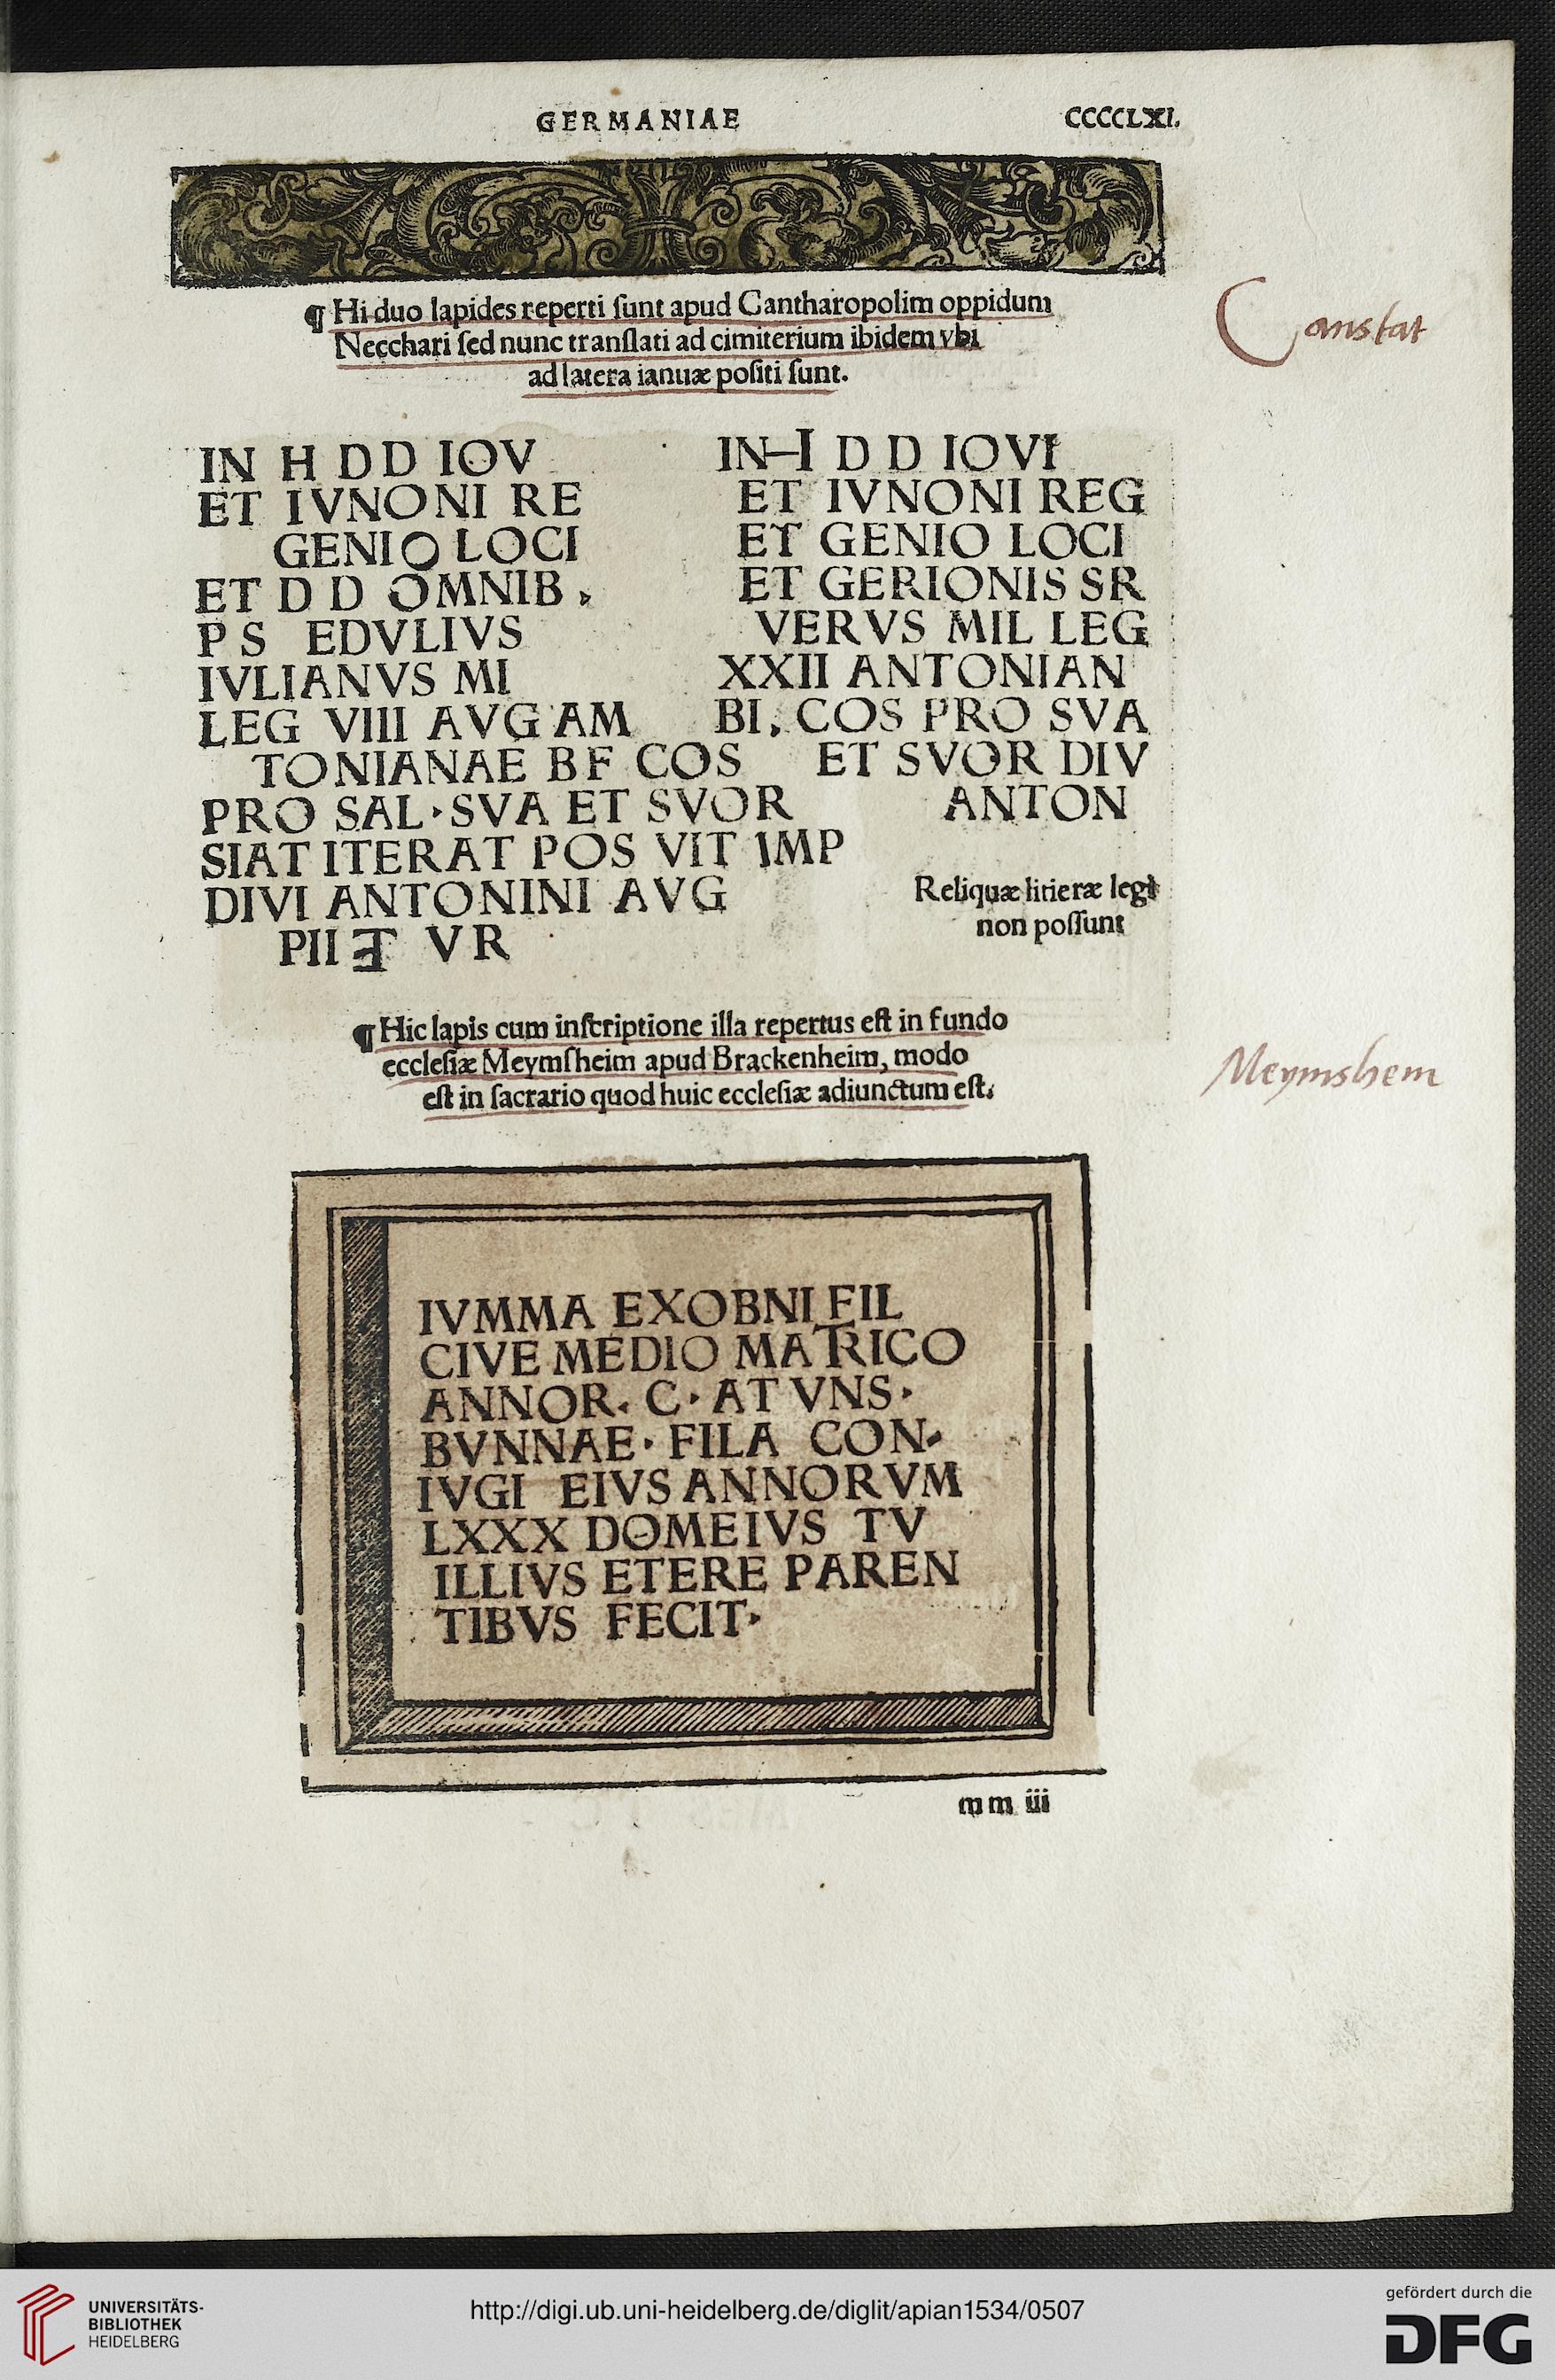 GERMANIAE
CCCCCLXI.
¶ Hi duo lapides reperti ſunt apud Cantharopolim oppidum
Necchari ſed nunc tranſlati ad cimiterium ibidem vbi
ad latera ianuæ poſiti ſunt.
Canstat
IN H D D IOV
ET IVNONI RE
GENIO LOCI
ET D D OMNIB.
P S EDVLIVS
IVLIANVS MI
LEG VIII AVG AM
TONIANAE BF COS
PRO SAL·SVA ET SVOR
SIAT ITERAT POS VIT IMP
DIVI ANTONINI AVG
PII ƎT VR
IN-I D D IOVI
ET IVNONI REG
ET GENIO LOCI
ET GERIONIS SR
VERVS MIL LEG
XXII ANTONIAN
BI. COS PRO SVA
ET SVOR DIV
ANTON
Reliquæ litteræ legi
non poſſunt
¶ Hic lapis cum inſcriptione illa repertus eſt in fundo
eccleſiæ Meymſheim apud Brackenheim, modo
eſt in ſacrario quod huic eccleſiæ adiunctum eſt.
Meymshem
IVMMA EXOBNI FIL
CIVE MEDIO MATRICO
ANNOR. C· AT VNS·
BVNNAE· FILA CON-
IVGI EIVS ANNORVM
LXXX DOMEIVS TV
ILLIVS ETERE PAREN
TIBVS FECIT·
mm iii
UNIVERSITÄTS-
BIBLIOTHEK
HEIDELBERG
http://digi.ub.uni-heidelberg.de/diglit/apian1534/0507
gefördert durch die
DFG